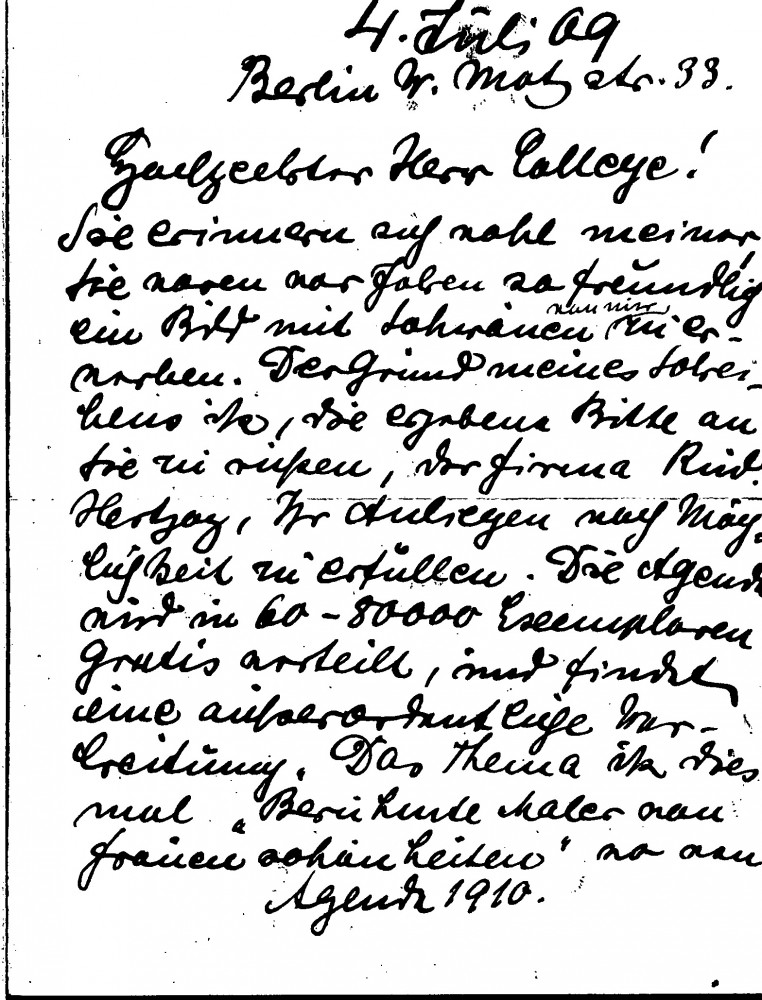 4. Juli 09
Berlin W. Motzstr. 33.
Hochgeehrter Herr College!
Sie erinnern sich wohl meiner,
Sie waren vor Jahren so freundlich
ein Bild mit Schwänen von mir zu er-
werben. Der Grund meines Schrei-
bens ist, die ergebene Bitte an
Sie zu richten, der Firma Rud.
Hertzog, Ihr Anliegen nach Mög-
lichkeit zu erfüllen. Die Agenda
wird in 60-80000 Exemplaren
gratis verteilt, und findet
eine außerordentliche Ver-
breitung. Das Thema ist dies
mal „Berühmte Maler von
Frauenschönheiten" von
Agenda 1910.